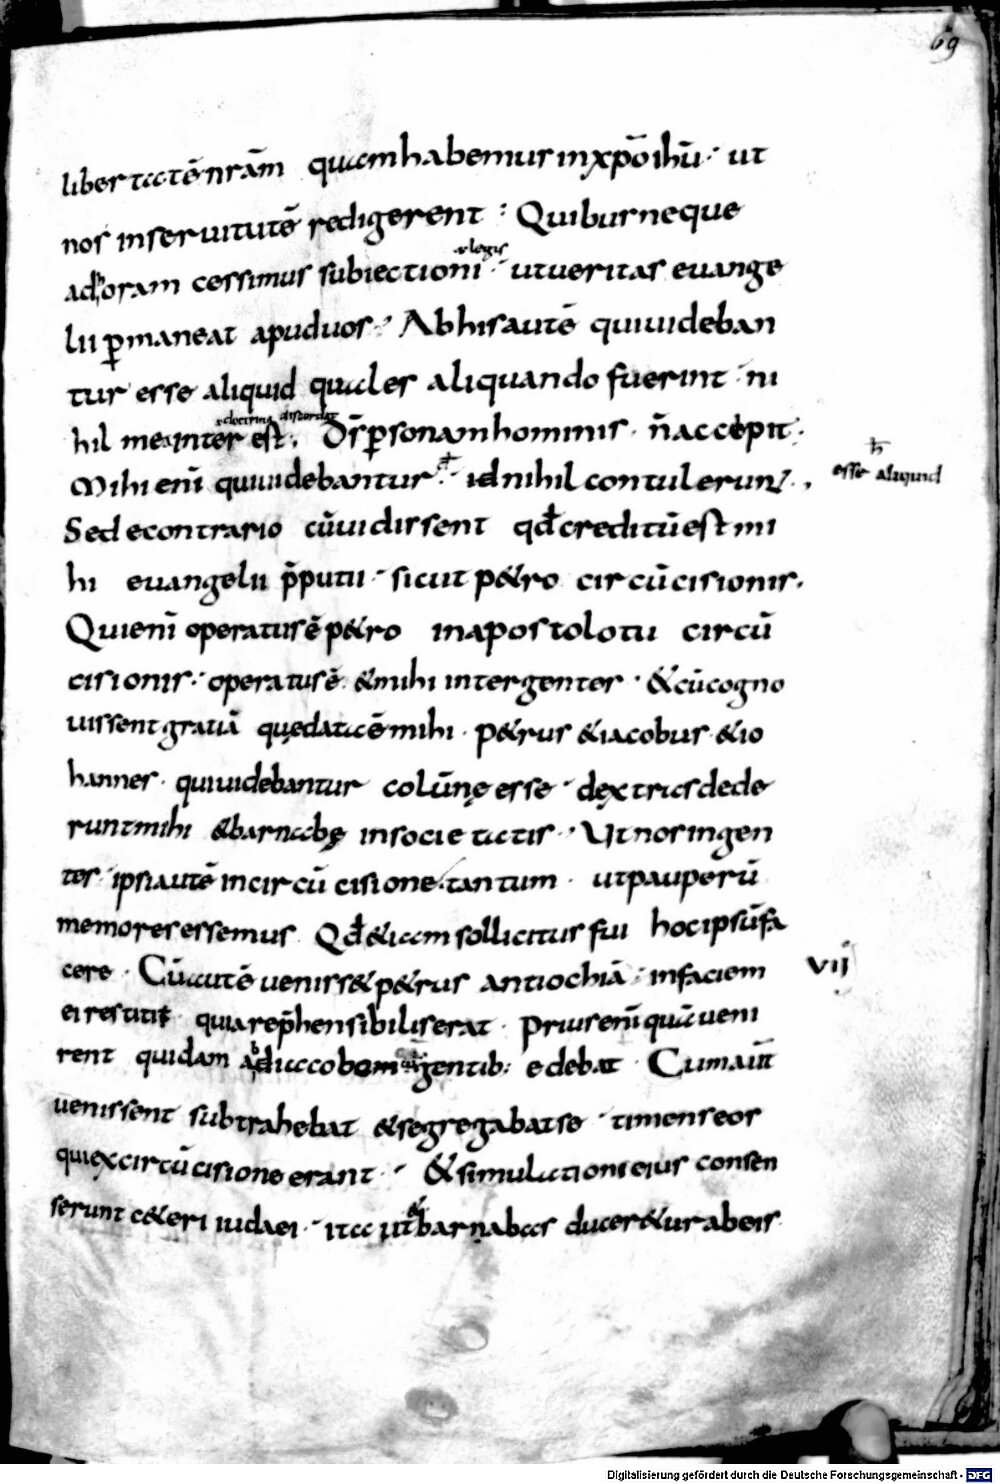 69
libertatē nrām quam habemus in xpō ihū· ut
nos in seruitutē redigerent : Quibus neque
ad horam cessimus subiectioni · ut ueritas euange
legis
lii ꝑmaneat apud uos · Ab his autē qui uideban
tur esse aliquid quales aliquando fuerint · ni
hil mea interest · Ds ꝑsonam hominis · n̄ accepit ·
Mihi eni̅ qui uidebantur · id nihil contulerunt ·
esse aliquid
Sed econtrario cū uidissent qđ creditū est mi
hi euangelii p̄putii · sicut p&ro circūcisionis ·
Qui eni̅ operatus ē p&ro in apostolotu circū
cisionis · operatus ē · & mihi inter gentes · & cū cogno
uissent gratiā quę data ē mihi · p&rus & iacobus & io
hannes · qui uidebantur colūnę esse · dextras dede
runt mihi & barnabę in societatis · Ut nos in gen
tes · ipsi autē in circūcisione · tantum · ut pauperū
memores essemus Qđ & iam sollicitus fui hoc ipsū fa
cere · Cū autē uenisset p&rus antiochiā · in faciem
VII
ei restitit quia rep̄hensibilis erat · Prius eni̅ quā ueni
rent quidam ab iacobo cum gentib: edebat · Cum aut̄
uenissent subtrahebat & segregabat se · timens eos
qui ex circūcisione erant · & simulationi eius consen
serunt c&eri iudaei · ita ut & barnabas ducer&ur ab eis
Digitalisierung gefördert durch die Deutsche Forschungsgemeinschaft - DFG